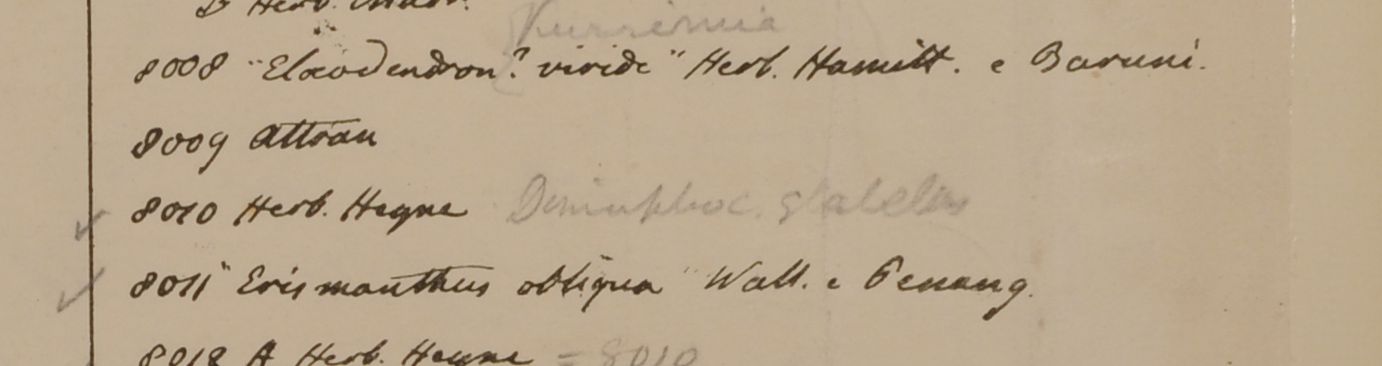 D Herb. Madr.
Kurrimia
8008 "Elaeodendron? viride" Herb. Hamilt. e Baruni.
8009 Attran
8010 Herb. Heyne
8011 "Erismanthus obliqua" Wall. e Penang.
8012 A Herb. Heyne = 8010